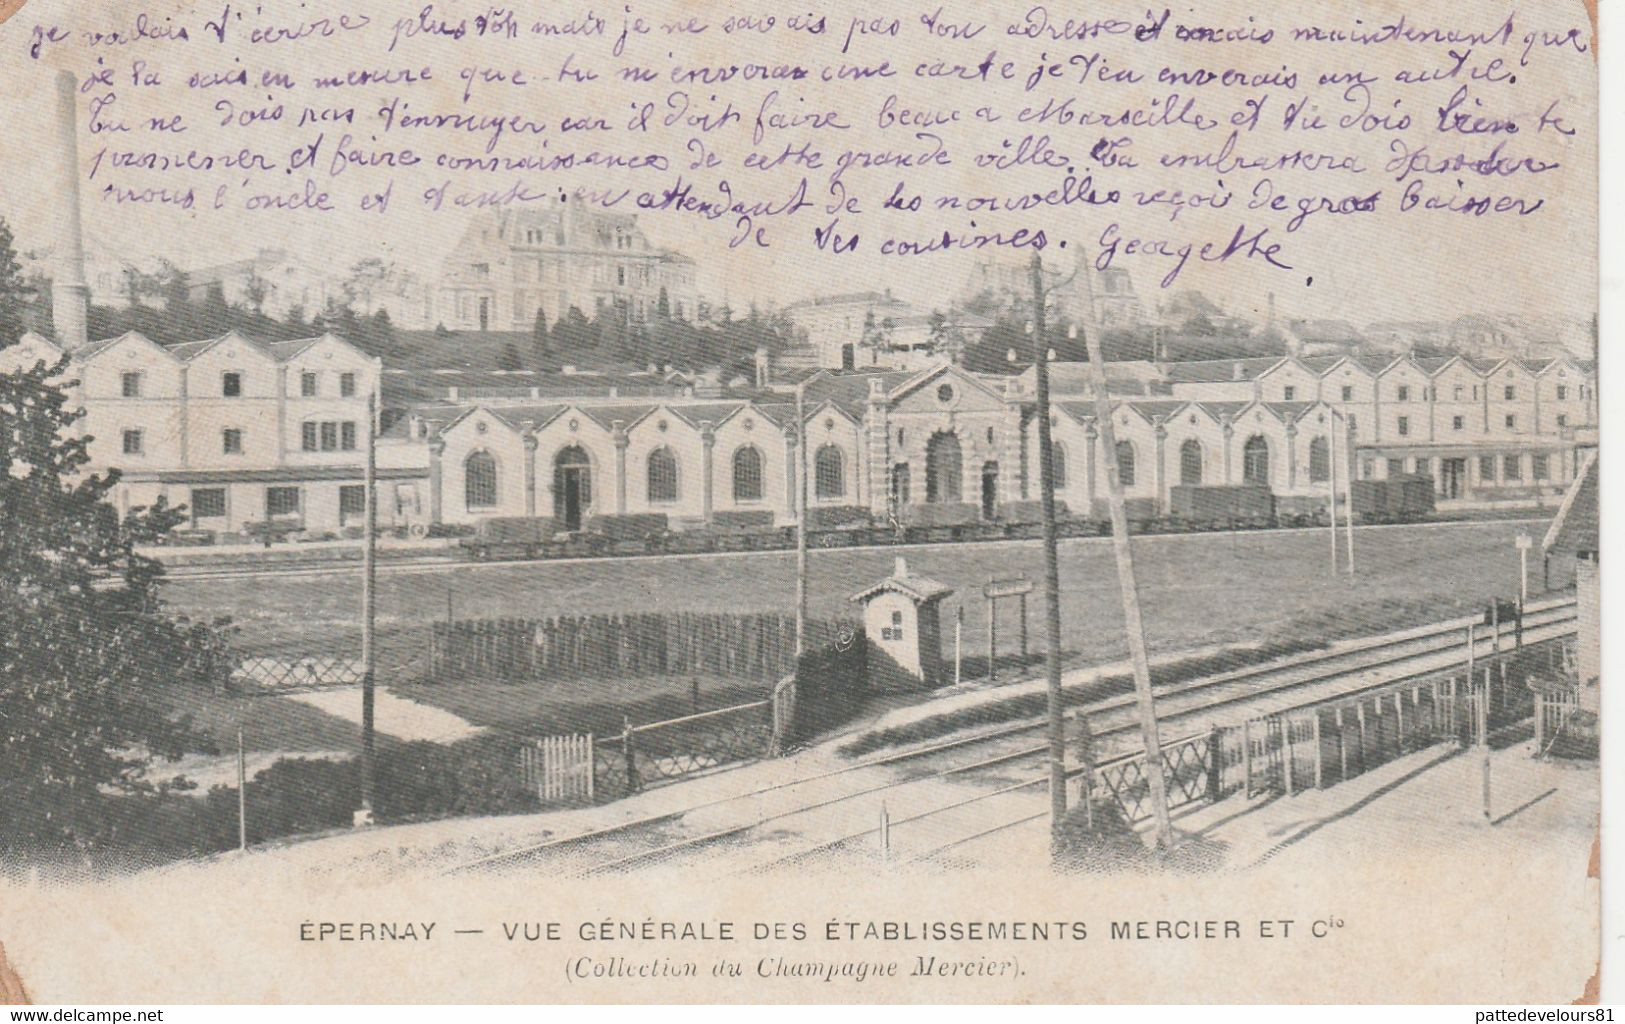 je voulais t'écrire plus tôh mais je ne savais pas ton adresse et mais maintenant que
je la sais en mesure que tu m'enverau une carte je t'en enverais un autre.
Tu ne dois pas t'ennuyer car il doit faire beau a Marseille et tu dois bien te
promener et faire connaissance de cette grande ville. Tu embrassera
nous l'oncle et tante : en attendant de tes nouvelles reçoi de gros baiser
de tes cousines. Georgette.
ÉPERNAY — VUE GÉNÉRALE DES ÉTABLISSEMENTS MERCIER ET Cie
(Collection du Champagne Mercier).
delcampe.net
pattedevelours81